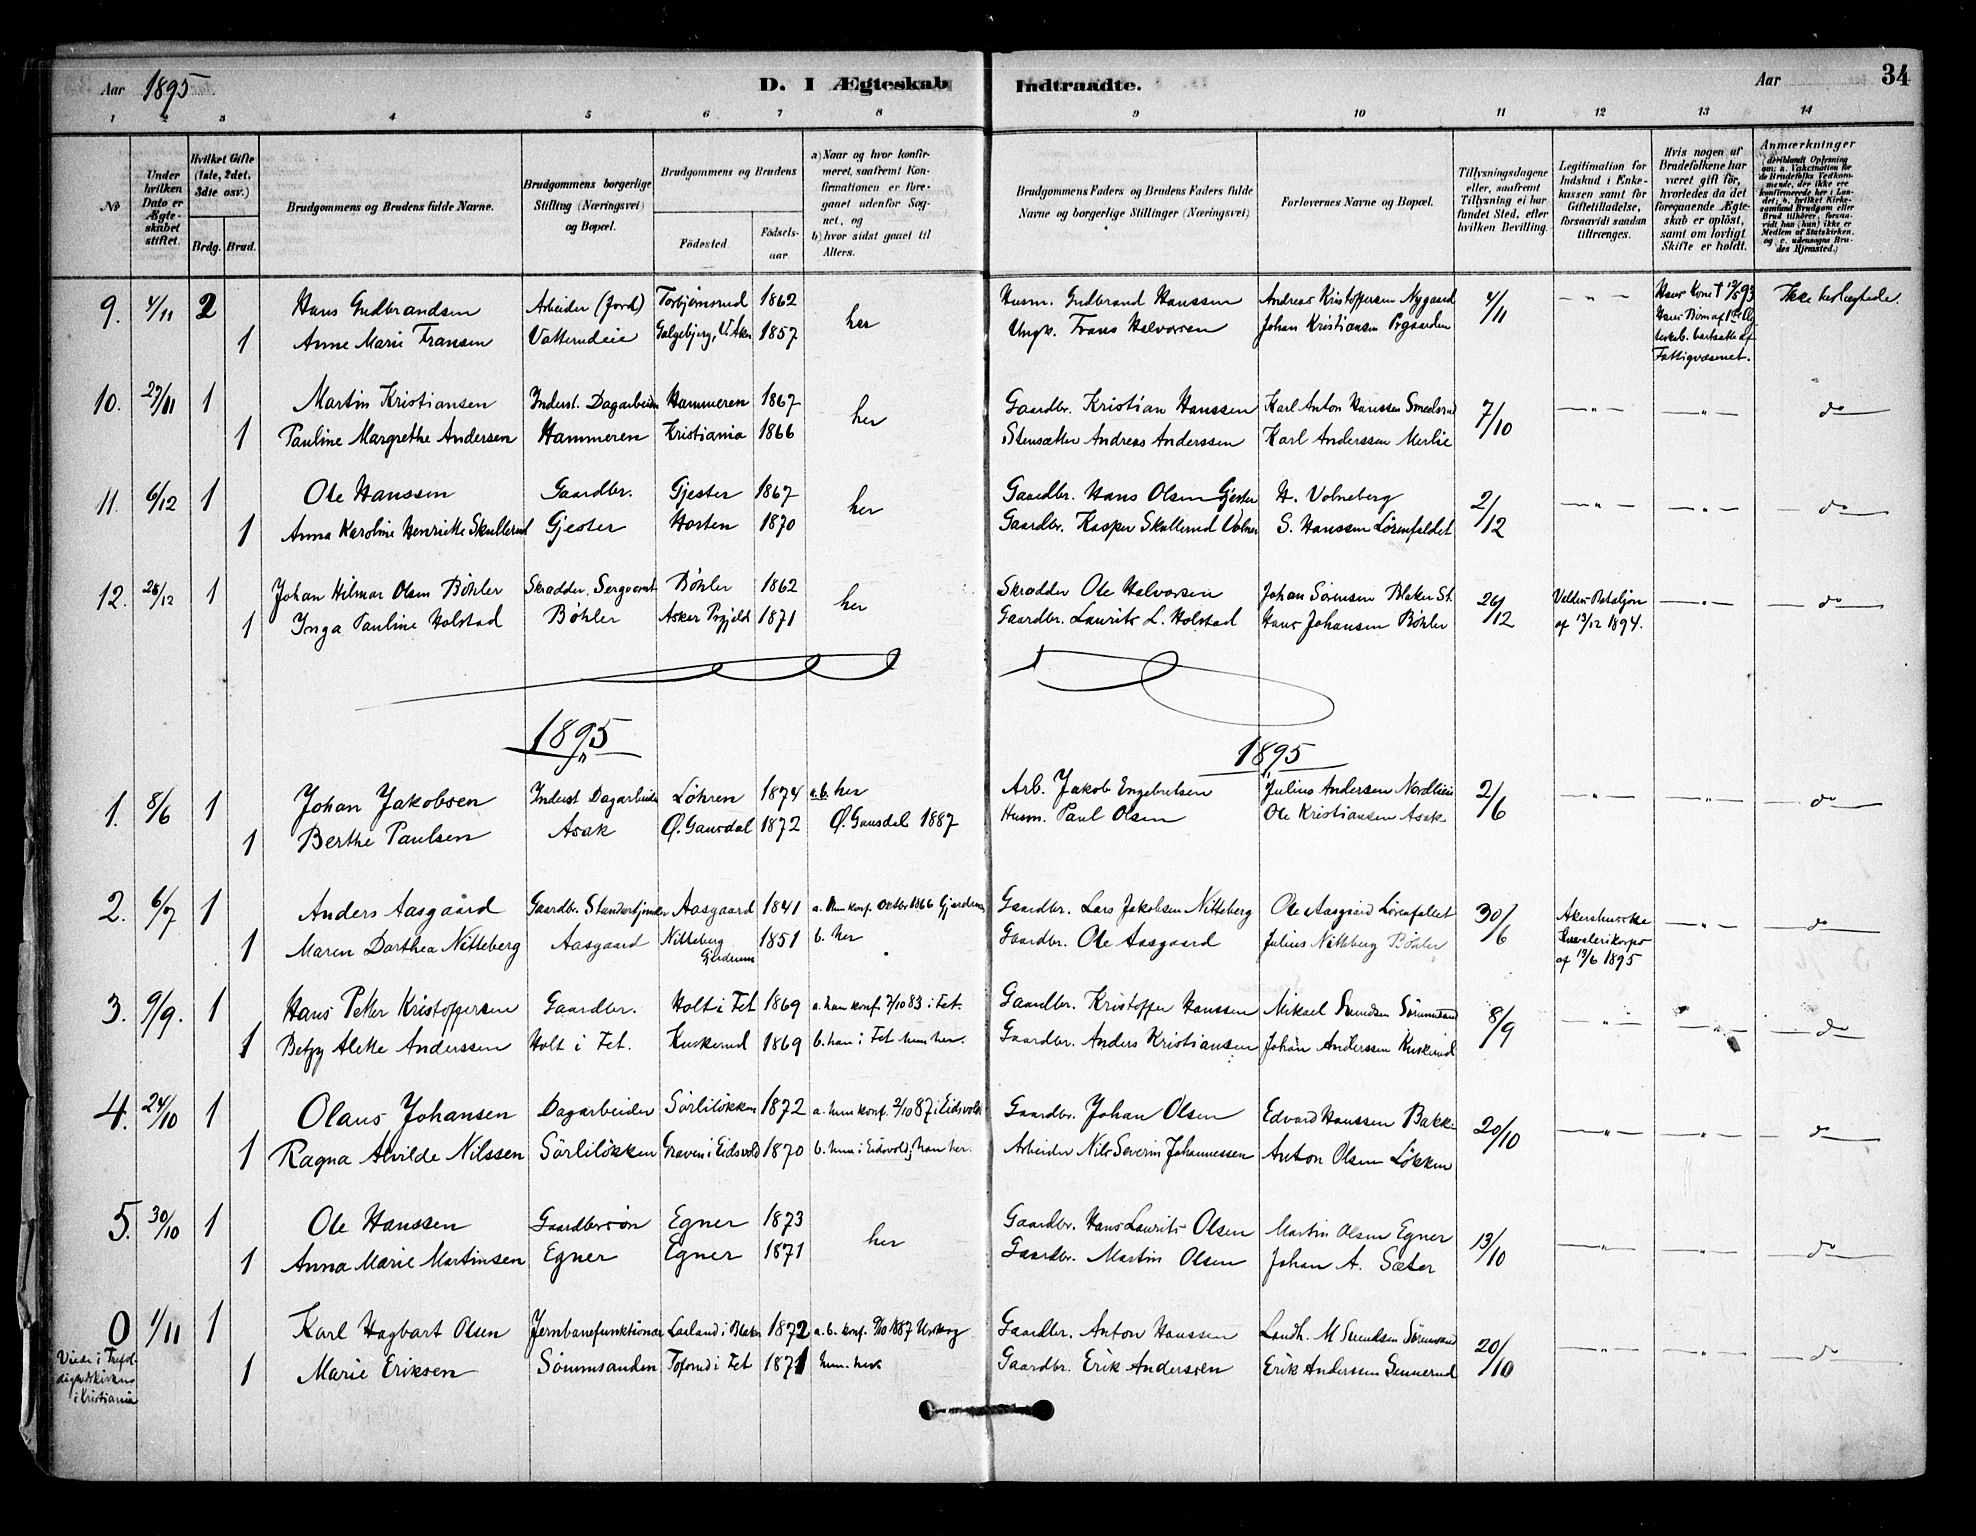 Aar 1895 D. I Ægteskab Indtraadte. Aar 34
1 2 3 4 5 6 7 8 9 10 11 12 13 14
No.
Under hvilken Dato er Ægteskabet stiftet.
Hvilket Gifte (1ste, 2det, 3die osv.)
Brdg. Brud.
Brudgommens og Brudens fulde Navne.
Brudgommens borgerlige Stilling (Næringsvei) og Bopæl.
Brudgommens og Brudens
Fødested. Fødsels-aar.
a) Naar og hvor konfirmeret, saafremt Konfirmationen er foregaaet udenfor Sognet, og
b) hvor sidst gaaet til Alters.
Brudgommens Faders og Brudens Faders fulde Navne og borgerlige Stillinger (Næringsvei)
Forlovernes Navne og Bopæl.
Tillysningsdagene eller, saafremt Tillysning ei har fundet Sted, efter hvilken Bevilling.
Legitimation for Indskud i Enkekassen samt for Giftetilladelse, forsaavidt saadan tiltrænges.
Hvis nogen af Brudefolkene har været gift før, hvorledes da det foregaaende Ægteskab er opløst, samt om lovligt Skifte er holdt.
Anmærkninger
9. 4/11 2 Hans Gudbrandsen Arbeider (Jord) Torbjørnsrud 1862 her Husm. Gudbrand Hanssen Andreas Kristoffersen Nygaard 4/11 — " — Hans Kone † 12/5 93 Ikke beslægtede.
1 Anne Marie Fransen Vatterudeie Galgebjerg, V. Aker 1857 Ungk. Frans Halvorsen Johan Kristiansen
Fattigvæsenet.
10. 27/11 1 Martin Kristiansen Inderst. Dagarbeider Hammeren 1867 her Gaardbr. Kristian Hanssen Karl Anton Hanssen Smedsrud 7/10 — " — — " — do
1 Pauline Margrethe Andersen Hammeren Kristiania 1866 Stensætter Andreas Anderssen Karl Anderssen Merlie
11. 6/12 1 Ole Hanssen Gaardbr. Gjester 1867 her Gaardbr. Hans Olsen Gjester H. Volneberg 2/12 — " — — " — do
1 Anna Karoline Henriette Skullerud Gjester Horten 1870 Gaardbr. Kasper Skullerud Volner S. Hanssen Lørenfaldet
12. 28/12 1 Johan Hilmar Olsen Bøhler Skrædder, Sergeant Bøhler 1862 her Skrædder Ole Halvorsen Johan Sørensen Blaker St. 26/12 Velden. Bataljon — " — do
1 Inga Pauline Holstad Bøhler Asker 1871 Gaardbr. Laurits L. Holstad Hans Johansen Bøhler af 13/12 1894.
1895 1895
1. 8/6 1 Johan Jakobsen Inderst Dagarbeider Løhren 1874 a. b. her Arb. Jakob Engebretsen Julius Andersen Nordlien 2/6 — " — — " — do
1 Berthe Paulsen Asak Ø. Gausdal 1872 Ø. Gausdal 1887 Husm. Paul Olsen Ole Kristiansen Asak
2. 6/7 1 Anders Aasgaard Gaardbr. Standartjunker Aasgaard 1841 a. Hun konf. Oktbr 1866 Gjerdrum Gaardbr. Lars Jakobsen Nitteberg Ole Aasgaard Lørenfallet 30/6 Akershusiske — " — do
1 Maren Dorthea Nitteberg Aasgaard Nitteberg Gjerdrum 1851 b. her Gaardbr. Ole Aasgaard Julius Nitteberg Bøhler Kavalerikorps
af 13/6 1895
3. 9/9. 1 Hans Petter Kristoffersen Gaardbr. Holt i Fet 1869 a. han konf. 7/10 83 i Fet. Gaardbr. Kristoffer Hanssen Mikael Svendsen Sørumsand 8/9 — " — — " — do
1 Betzy Alette Anderssen Holt i Fet. Kuskerud 1869 b. han i Fet hun her. Gaardbr. Anders Kristiansen Johan Anderssen Kuskerud
4. 24/10 1 Olaus Johansen Dagarbeider Sørliløkken 1872 a. hun konf. 2/10 87 i Eidsvold Gaardbr. Johan Olsen Edvard Hanssen Bakke 20/10 — " — — " — do
1 Ragna Alvilde Nilssen Sørliløkken Graven i Eidsvold 1870 b. hun i Eidsvold, han her. Arbeider Nils Severin Johannessen Anton Olsen Løkken
5. 30/10 1 Ole Hanssen Gaardbrsøn Egner 1873 her Gaardbr. Hans Laurits Olsen Martin Olsen Egner 13/10 — " — — " — do
1 Anna Marie Martinsen Egner Egner 1871 Gaardbr. Martin Olsen Johan A. Sæter
0 1/11 1 Karl Hagbart Olsen Jernbanefunktionær i Blaker 1872 a. b. konf. 1887 Urskog Gaardbr. Anton Hanssen Landh. M Svendsen Sørumsand 20/10 — " — — " — do
Viede i Trefoldighedskirken i Kristiania
1 Marie Eriksen Sørumsanden Toforud i Fet 1871 hun her Gaardbr. Erik Anderssen Erik Anderssen Sennerud